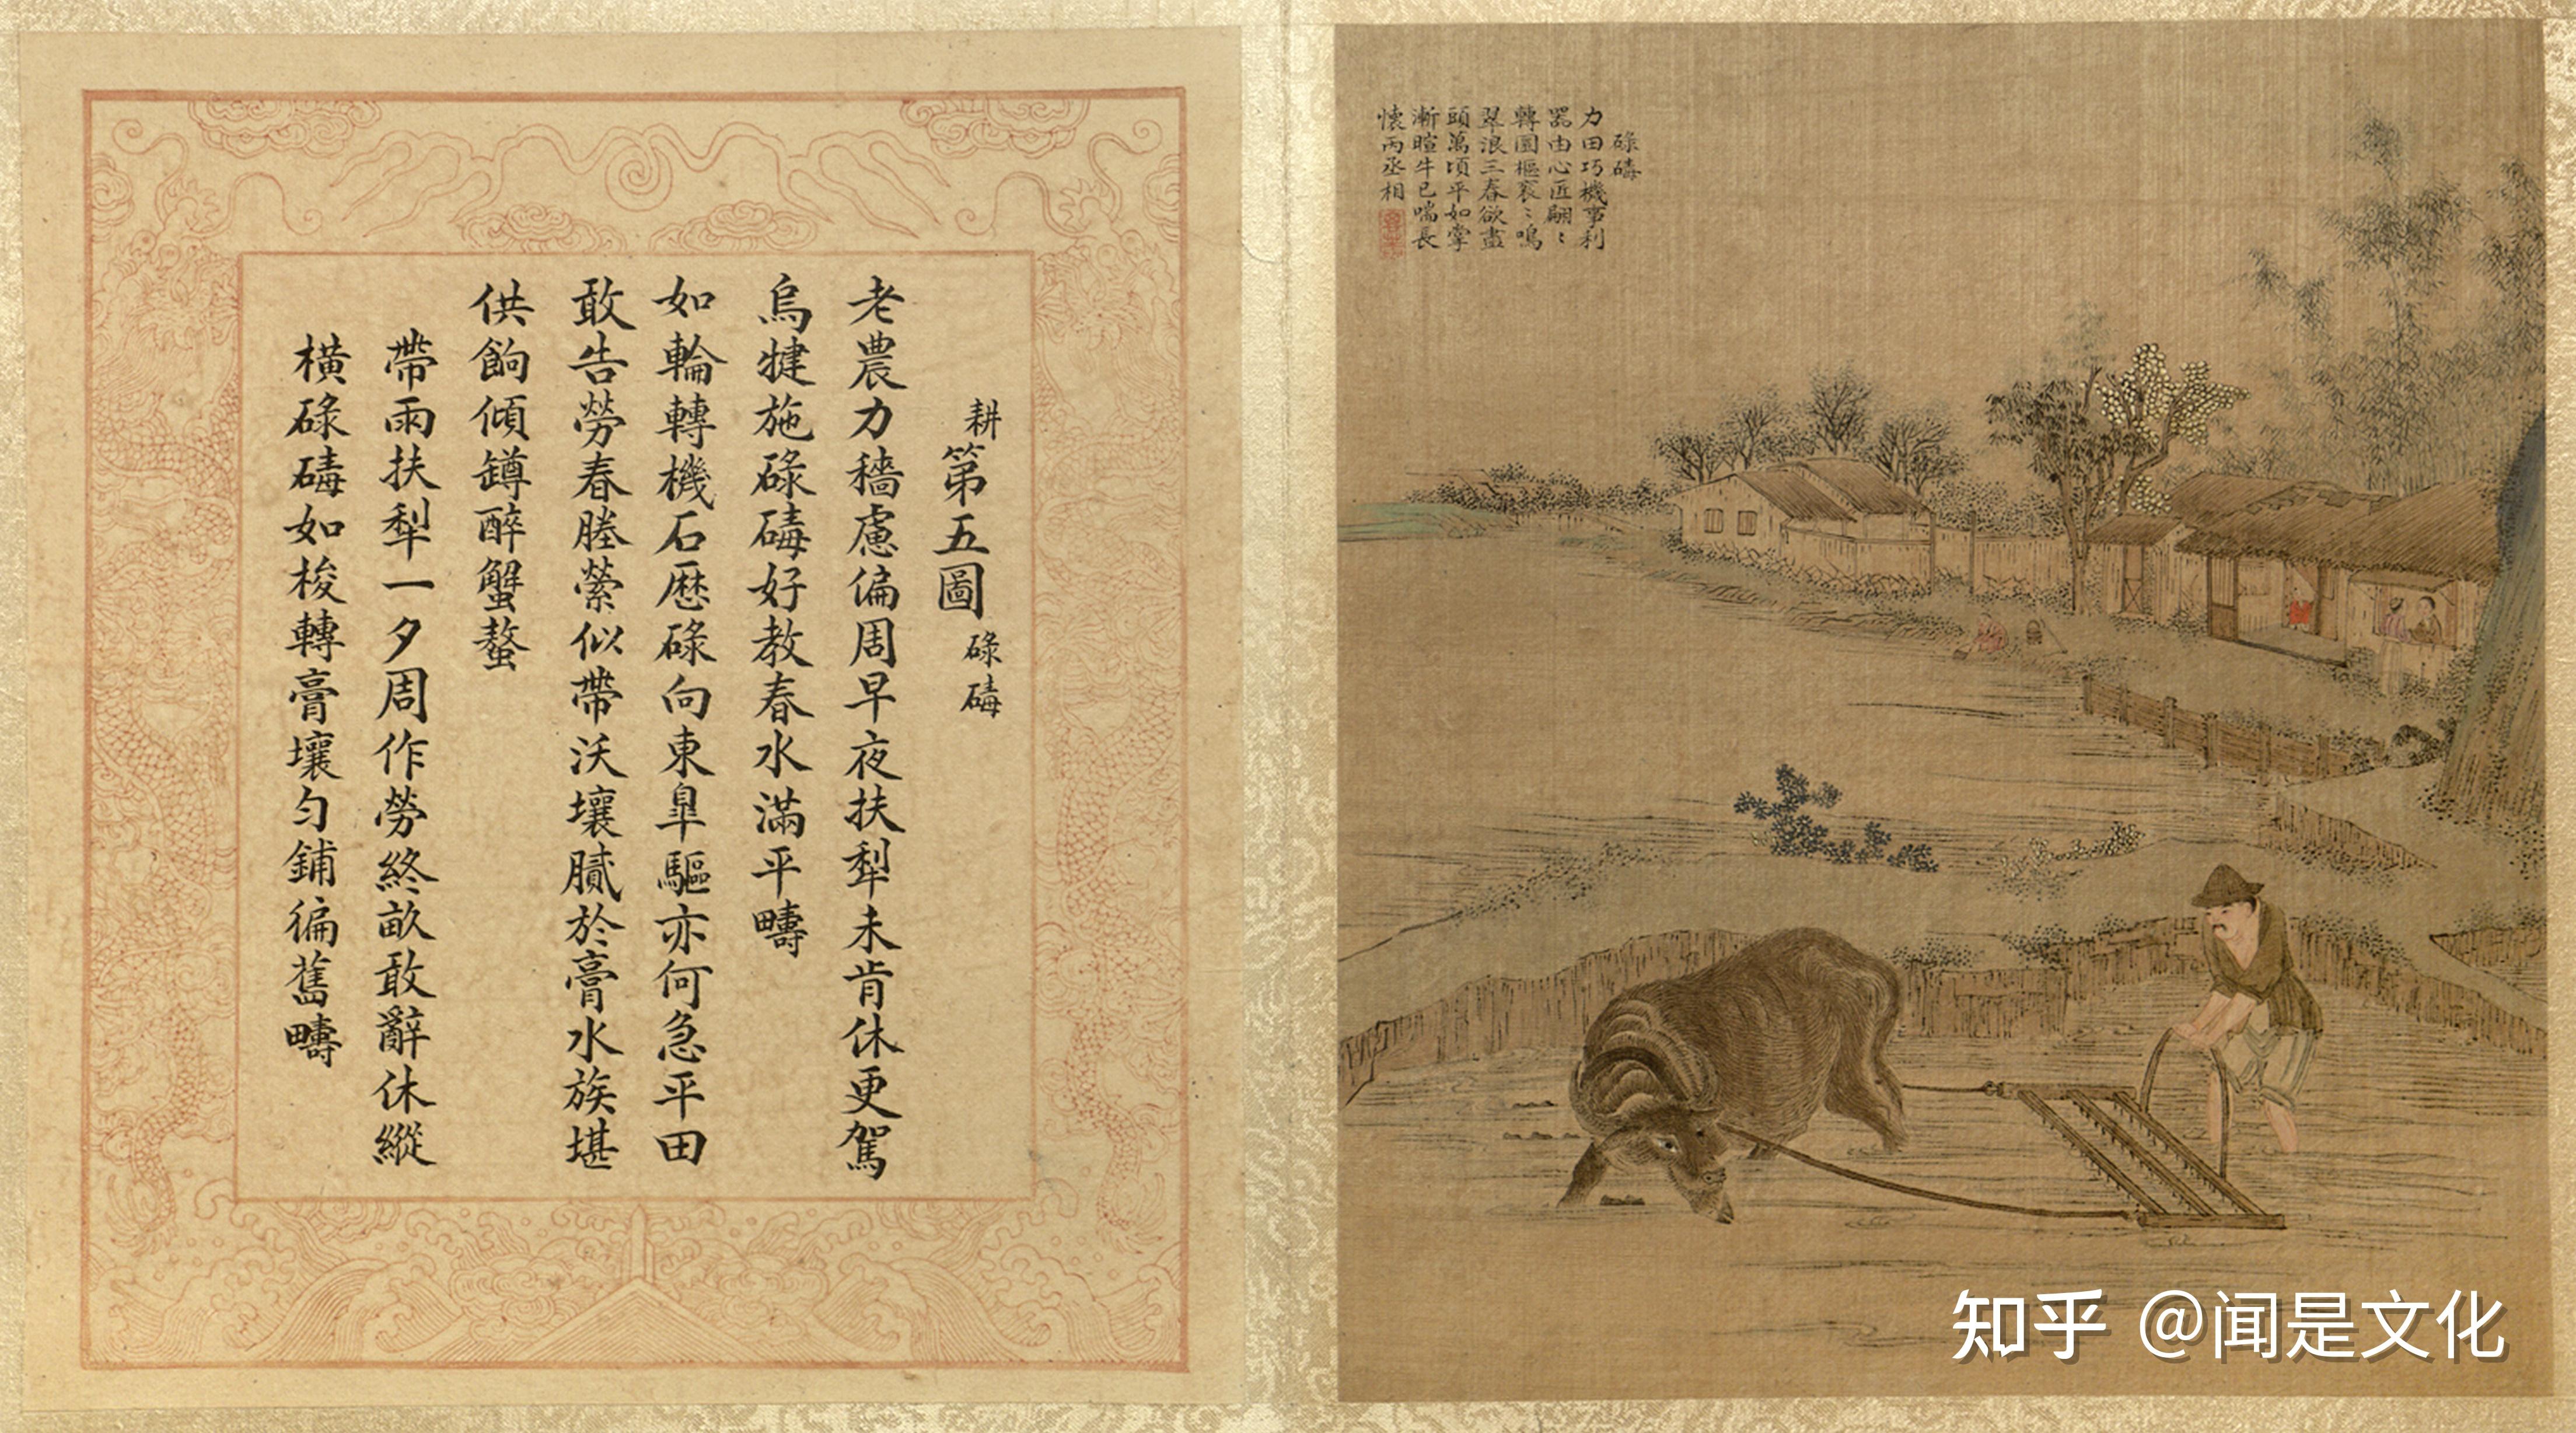 碌碡
力田巧機事利
器由心匠翩〻
轉圜樞袞〻鳴
翠浪三春欲盡
頭萬頃平如掌
漸暄牛已喘長
懷丙丞相
耕第五圖 碌碡
老農力穡慮偏周早夜扶犂未肯休更駕
烏犍施碌碡好教春水滿平疇
如輪轉機石厯碌向東皐驅亦何急平田
敢告勞春塍縈似帶沃壤膩於膏水族堪
供餉傾罇醉蟹螯
帶雨扶犂一夕周作勞終畝敢辭休縱
橫碌碡如梭轉膏壤勻鋪徧舊疇
知乎 @闻是文化